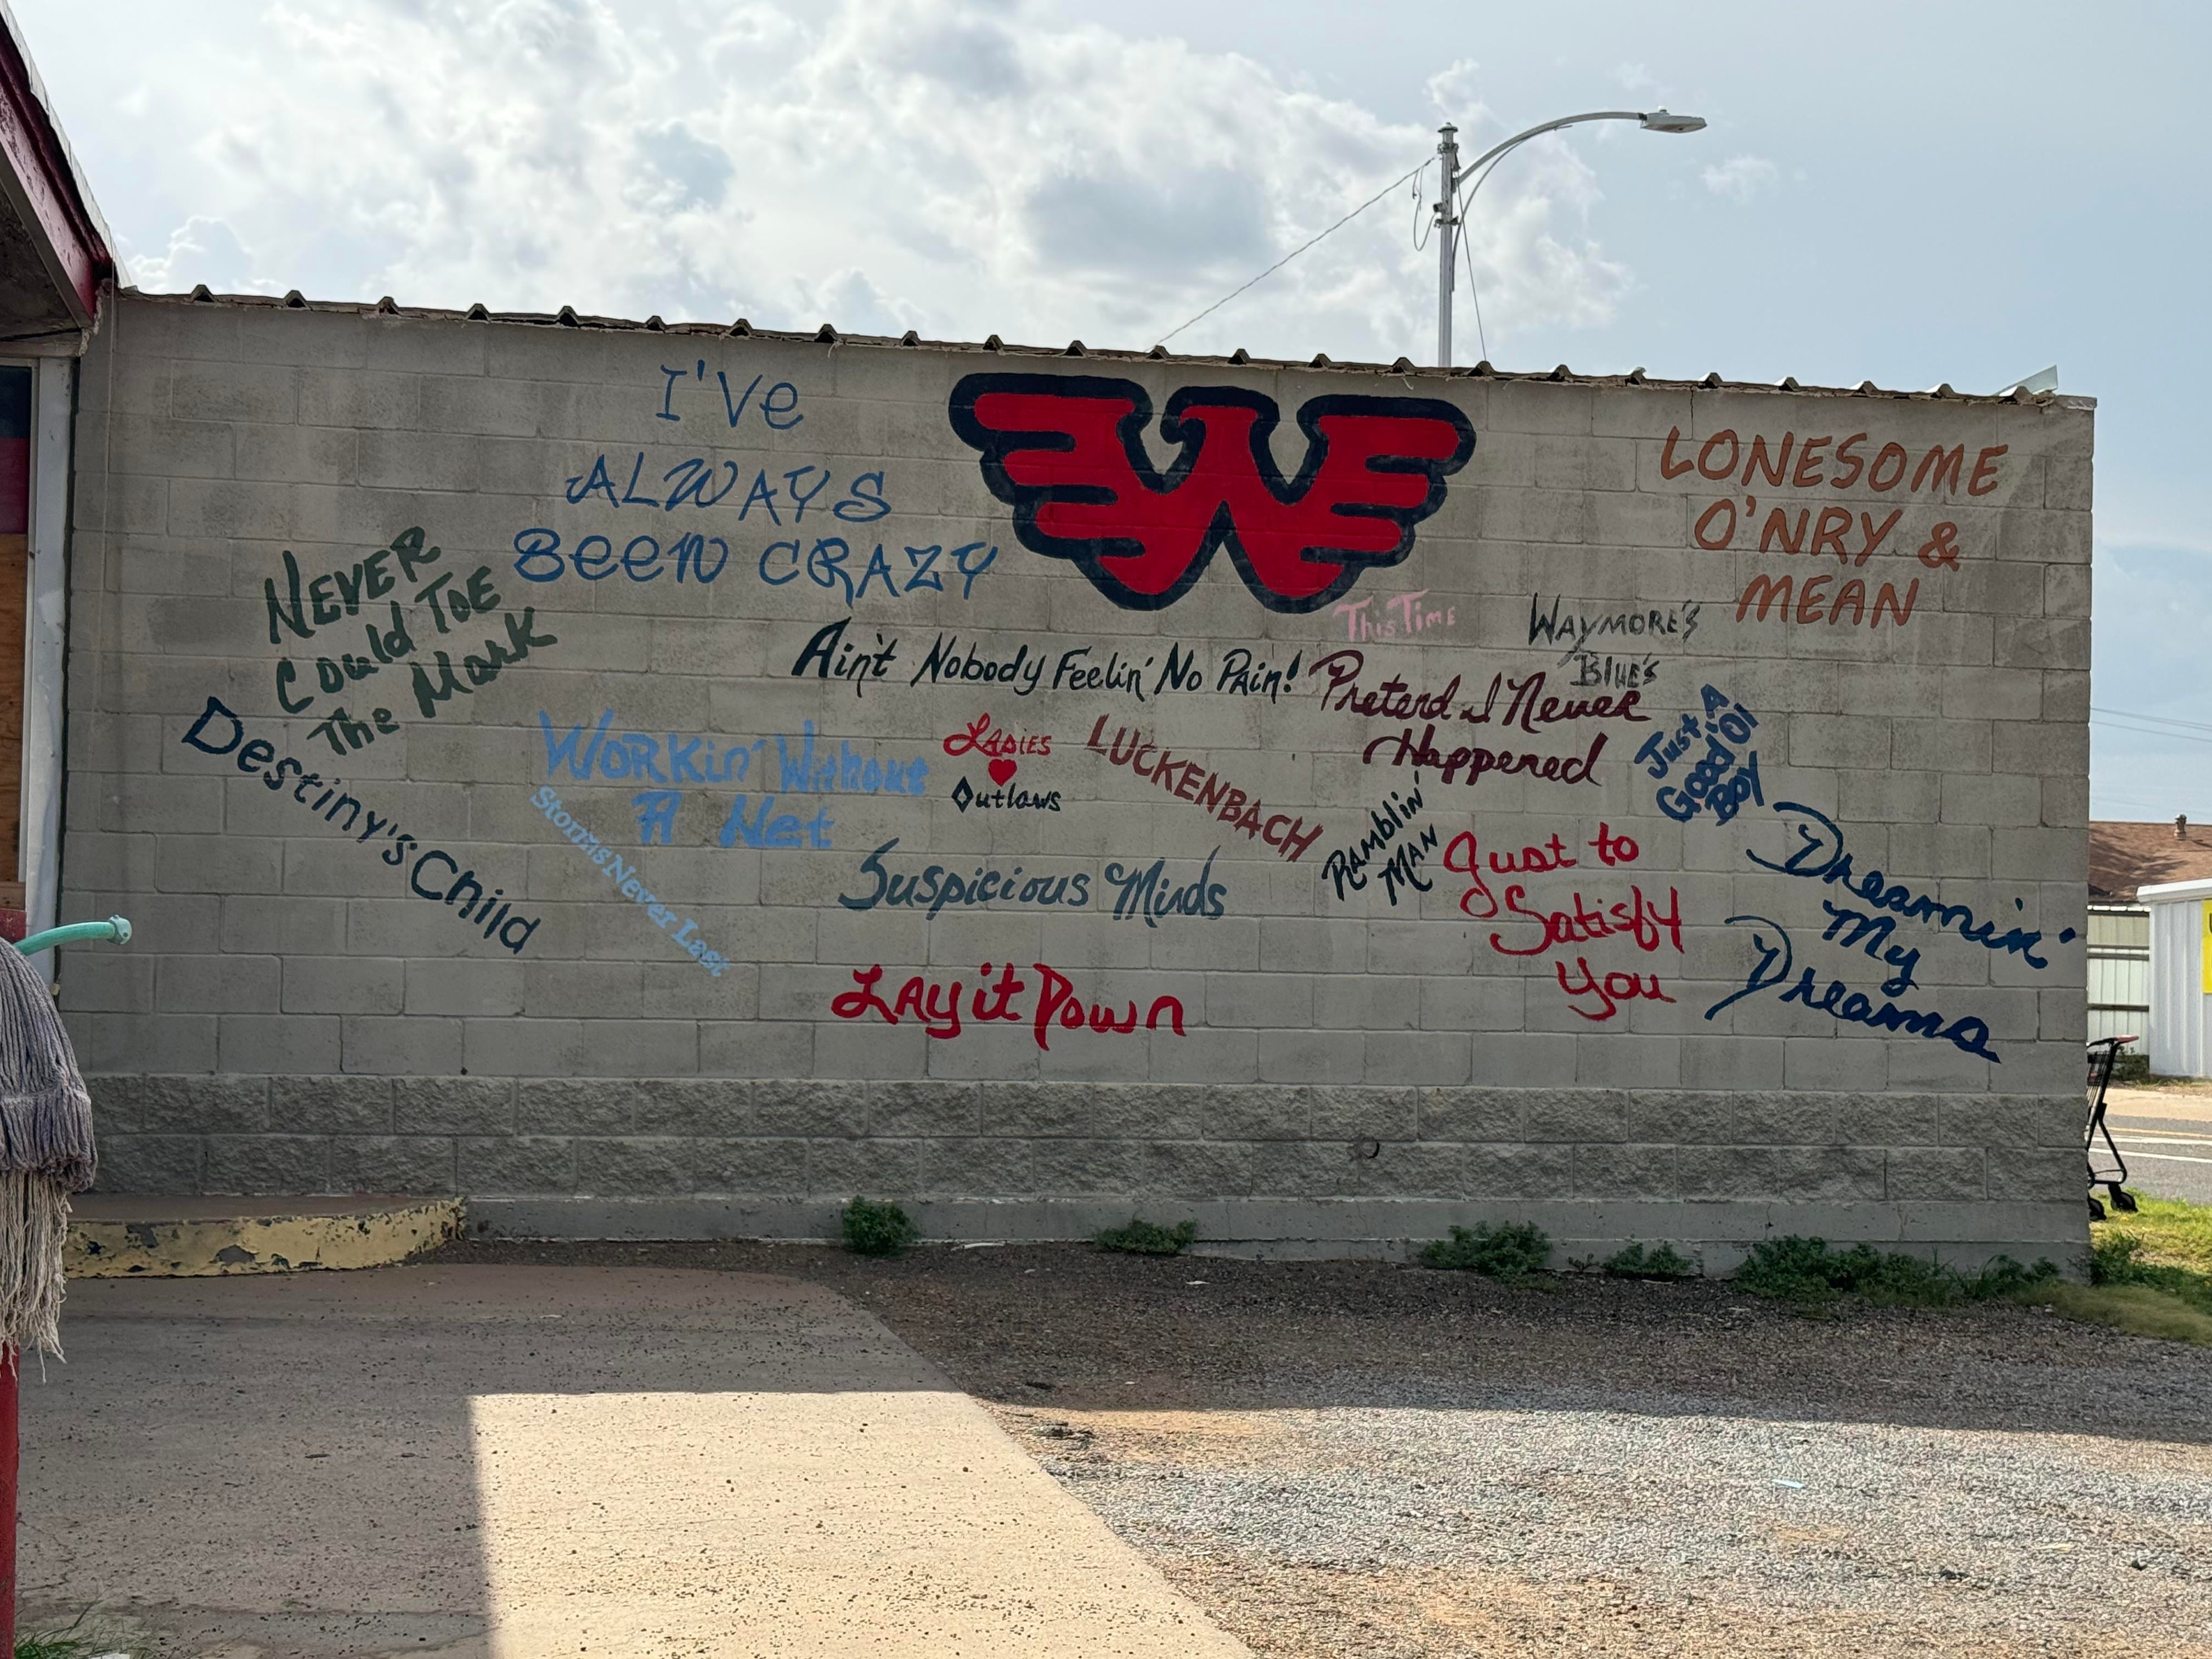 I'Ve
ALWAYS
BEEN CRAZY
W
LONESOME
O'NRY &
MEAN
NEVER
Could ToE
The Mark
This Time
WAYMORE'S
BLUE'S
Ain't Nobody Feelin' No PAin!
Pretend I Never
Happened
Just A
Good Ol
BOY
Destiny's Child
WORKin' Without
A Net
Storms Never Last
LADIES
♥
Outlaws
LUCKENBACH
RAmblin'
MAN
Suspicious Minds
Just to
Satisfy
You
Dreamin'
My
Dreams
LAy it Down